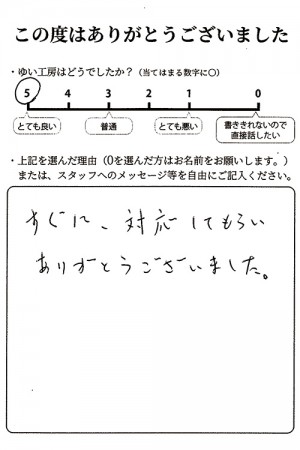 この度はありがとうございました
・ゆい工房はどうでしたか？（当てはまる数字に○）
5 4 3 2 1 0
とても良い 普通 とても悪い 書ききれないので
直接話したい
・上記を選んだ理由（0を選んだ方はお名前をお願いします。）
または、スタッフへのメッセージ等を自由にご記入ください。
すぐに、対応してもらい
ありがとうございました。